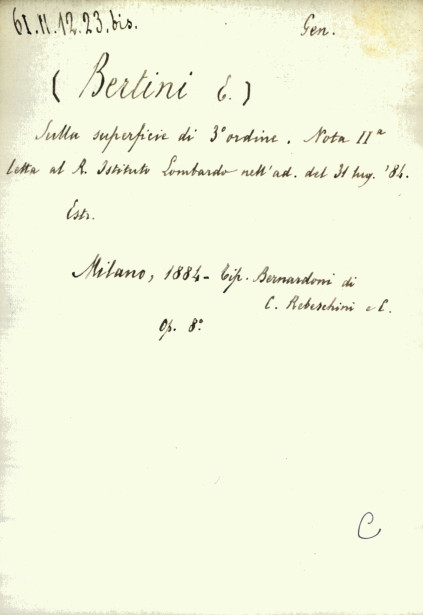 61.11.12.23.bis. Gen.
( Bertini E. )
Sulla superficie di 3° ordine. Nota IIª
letta al R. Istituto Lombardo nell'ad. del 31 lug. '84.
Estr.
Milano, 1884 - Tip. Bernardoni di
C. Rebeschini e C.
Op. 8°
C